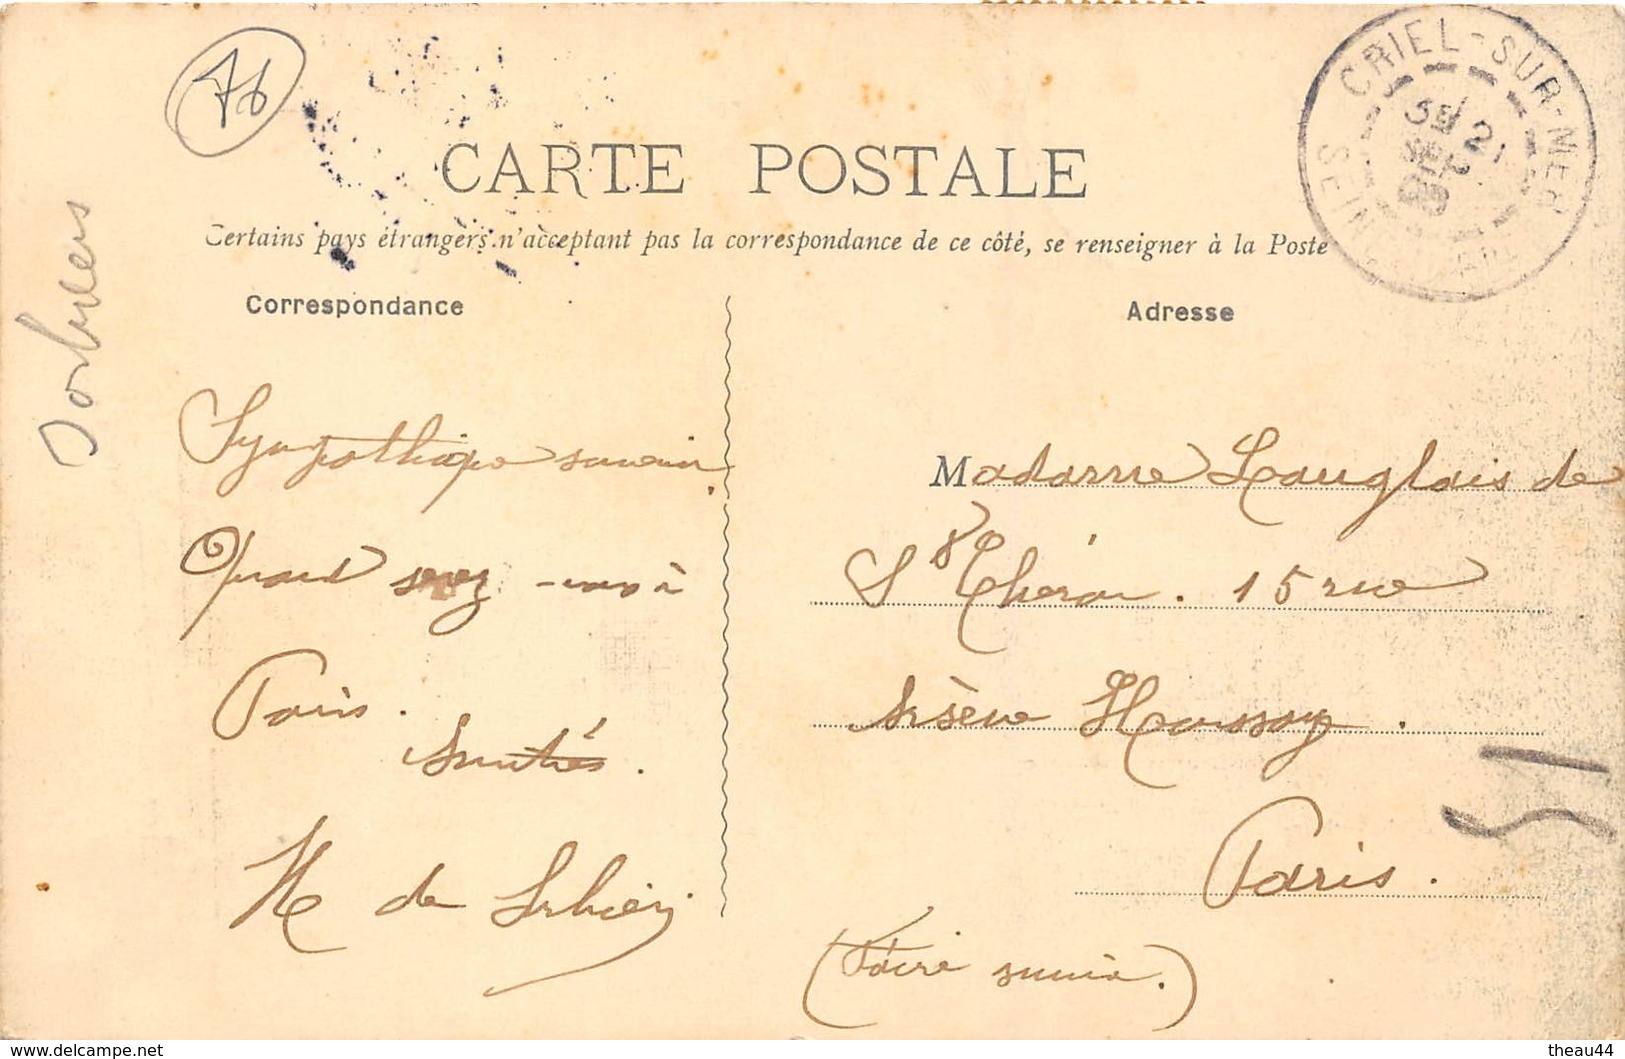 76
CRIEL-SUR-MER
SEINE
21
SEPT
09
CARTE POSTALE
Certains pays étrangers n'acceptant pas la correspondance de ce côté, se renseigner à la Poste
Correspondance
Adresse
Sympathique souvenir.
Quand serez-vous à
Paris.
Amitiés.
de
Madame Langlais de
St Théran. 15 rue
Arsène Houssay.
Paris.
(Faire suivre.)
51
www.delcampe.net
theau44